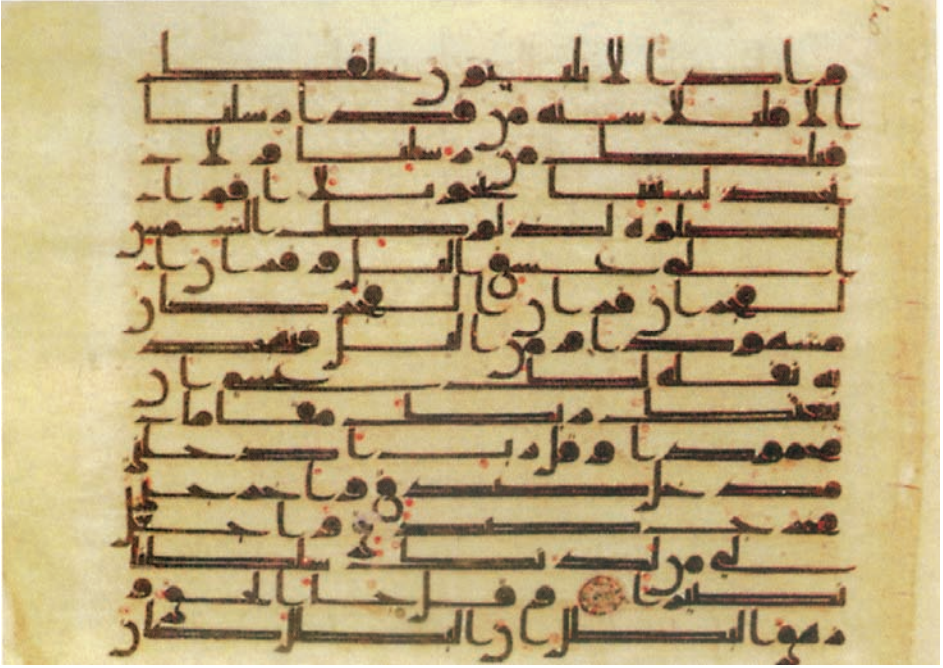 واذا لا يلبثون خلفك
الا قليلا سنه من قد ارسلنا
قبلك من رسلنا ولا
تجد لسنتنا تحويلا اقم ا
لصلوه لدلوك الشمس
الى غسق اليل وقران ا
لفجر ان قران الفجر كان
مشهودا ومن اليل فتهجد
به نفله لك عسى ان
يبعثك ربك مقاما
محمودا وقل رب ادخلني
مدخل صدق واخرجني
مخرج صدق واجعل
لي من لدنك سلطنا
نصيرا وقل جا الحق و
زهق البطل ان البطل كان